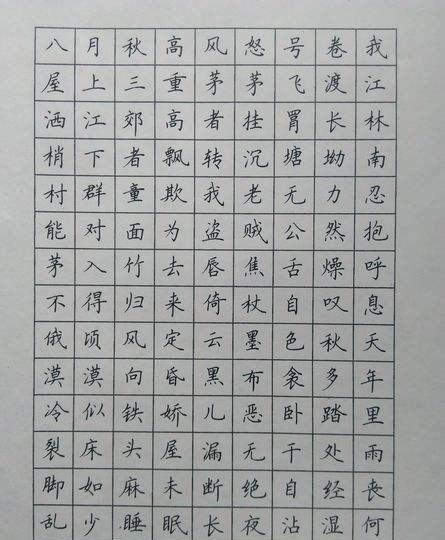 八月秋高风怒号卷我
屋上三重茅茅飞渡江
洒江郊高者挂罥长林
梢下者飘转沉塘坳南
村群童欺我老无力忍
能对面为盗贼公然抱
茅入竹去唇焦舌燥呼
不得归来倚杖自叹息
俄顷风定云墨色秋天
漠漠向昏黑布衾多年
冷似铁娇儿恶卧踏里
裂床头屋漏无干处雨
脚如麻未断绝自经丧
乱少睡眠长夜沾湿何